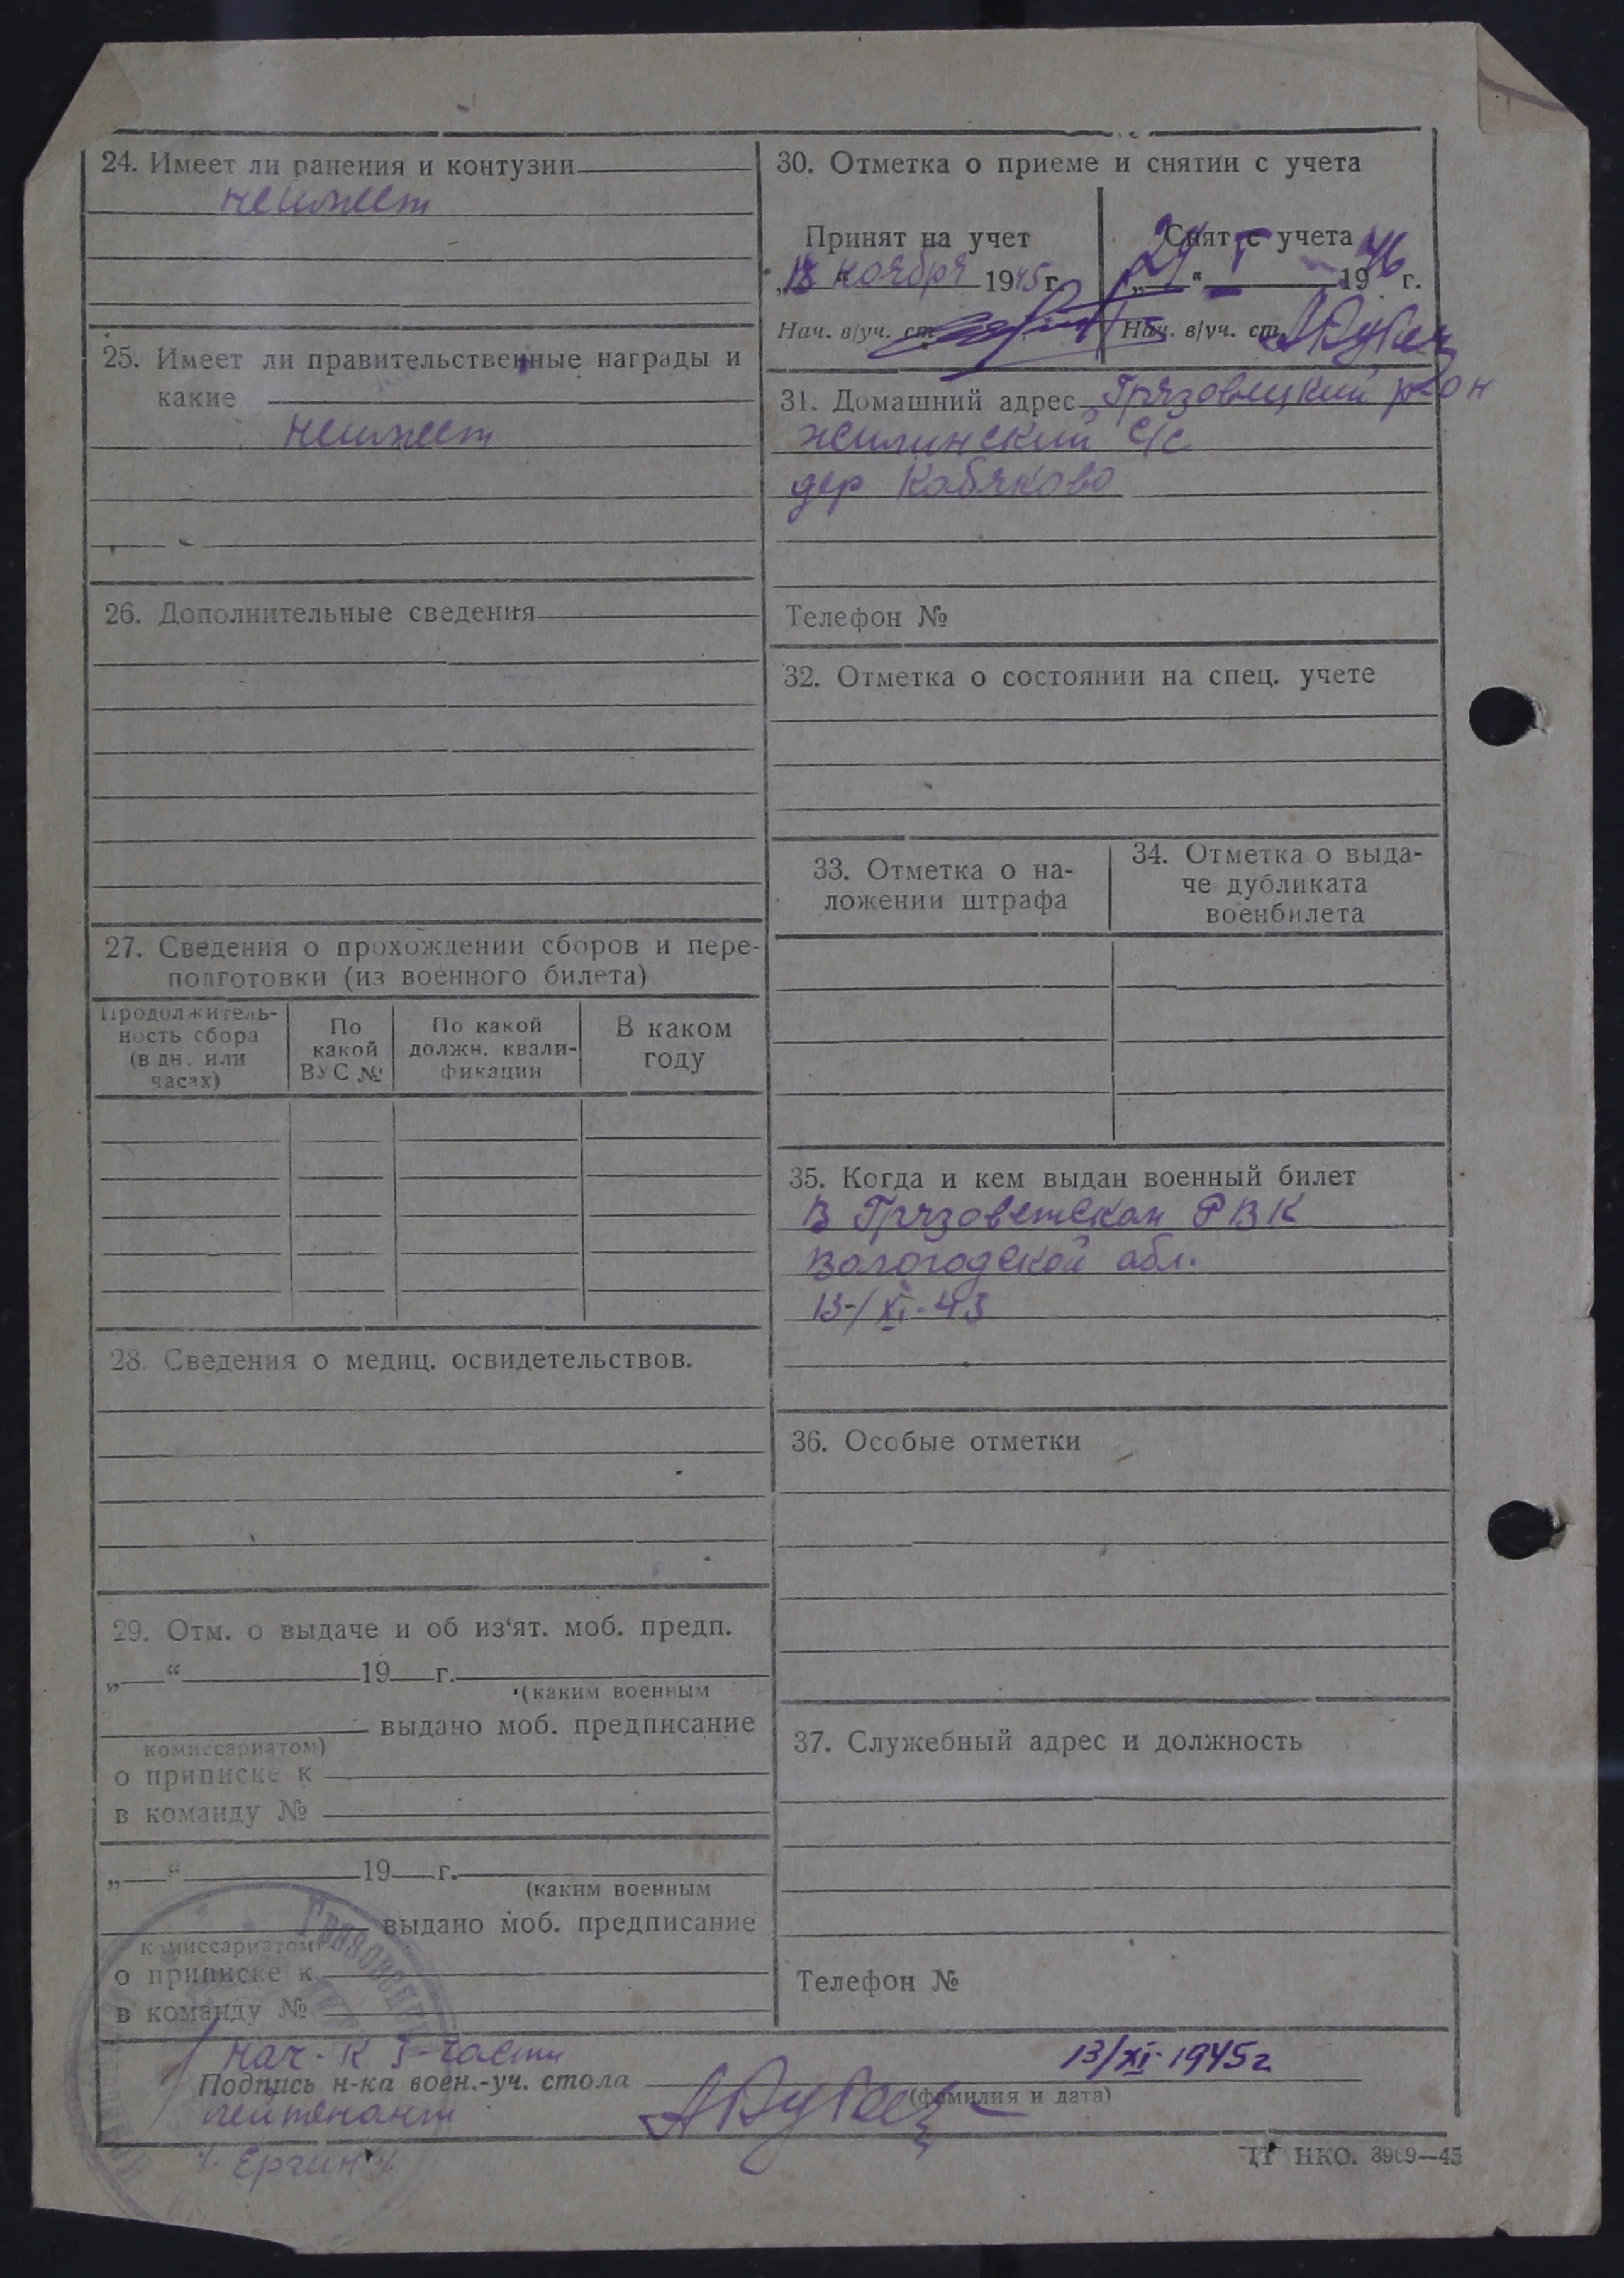 24. Имеет ли ранения и контузии
неимеет
25. Имеет ли правительственные награды и
какие
неимеет
26. Дополнительные сведения
27. Сведения о прохождении сборов и пере-
подготовки (из военного билета)
Продолжитель-
ность сбора
(в дн. или
часах)
По
какой
ВУС №
По какой
должн. квали-
фикации
В каком
году
28. Сведения о медиц. освидетельствов.
29. Отм. о выдаче и об из‘ят. моб. предп.
„ “ 19 г.
(каким военным
выдано моб. предписание
комиссариатом)
о приписке к
в команду №
„ “ 19 г.
(каким военным
выдано моб. предписание
комиссариатом)
о приписке к
в команду №
30. Отметка о приеме и снятии с учета
Принят на учет
„13 ноября 1945 г.
Нач. в/уч. ст.
Снят с учета
„24“ I 1946 г.
Нач. в/уч. ст.
31. Домашний адрес Грязовецкий р-он
жилинский с/с
дер Кабяково
Телефон №
32. Отметка о состоянии на спец. учете
33. Отметка о на-
ложении штрафа
34. Отметка о выда-
че дубликата
военбилета
35. Когда и кем выдан военный билет
В Грязоветскам РВК
Вологодской абл.
13/XI-43
36. Особые отметки
37. Служебный адрес и должность
Телефон №
Нач-к I-части
13/XI-1945г
Подпись н-ка воен.-уч. стола
(фамилия и дата)
лейтенант
НКО. 3909—45